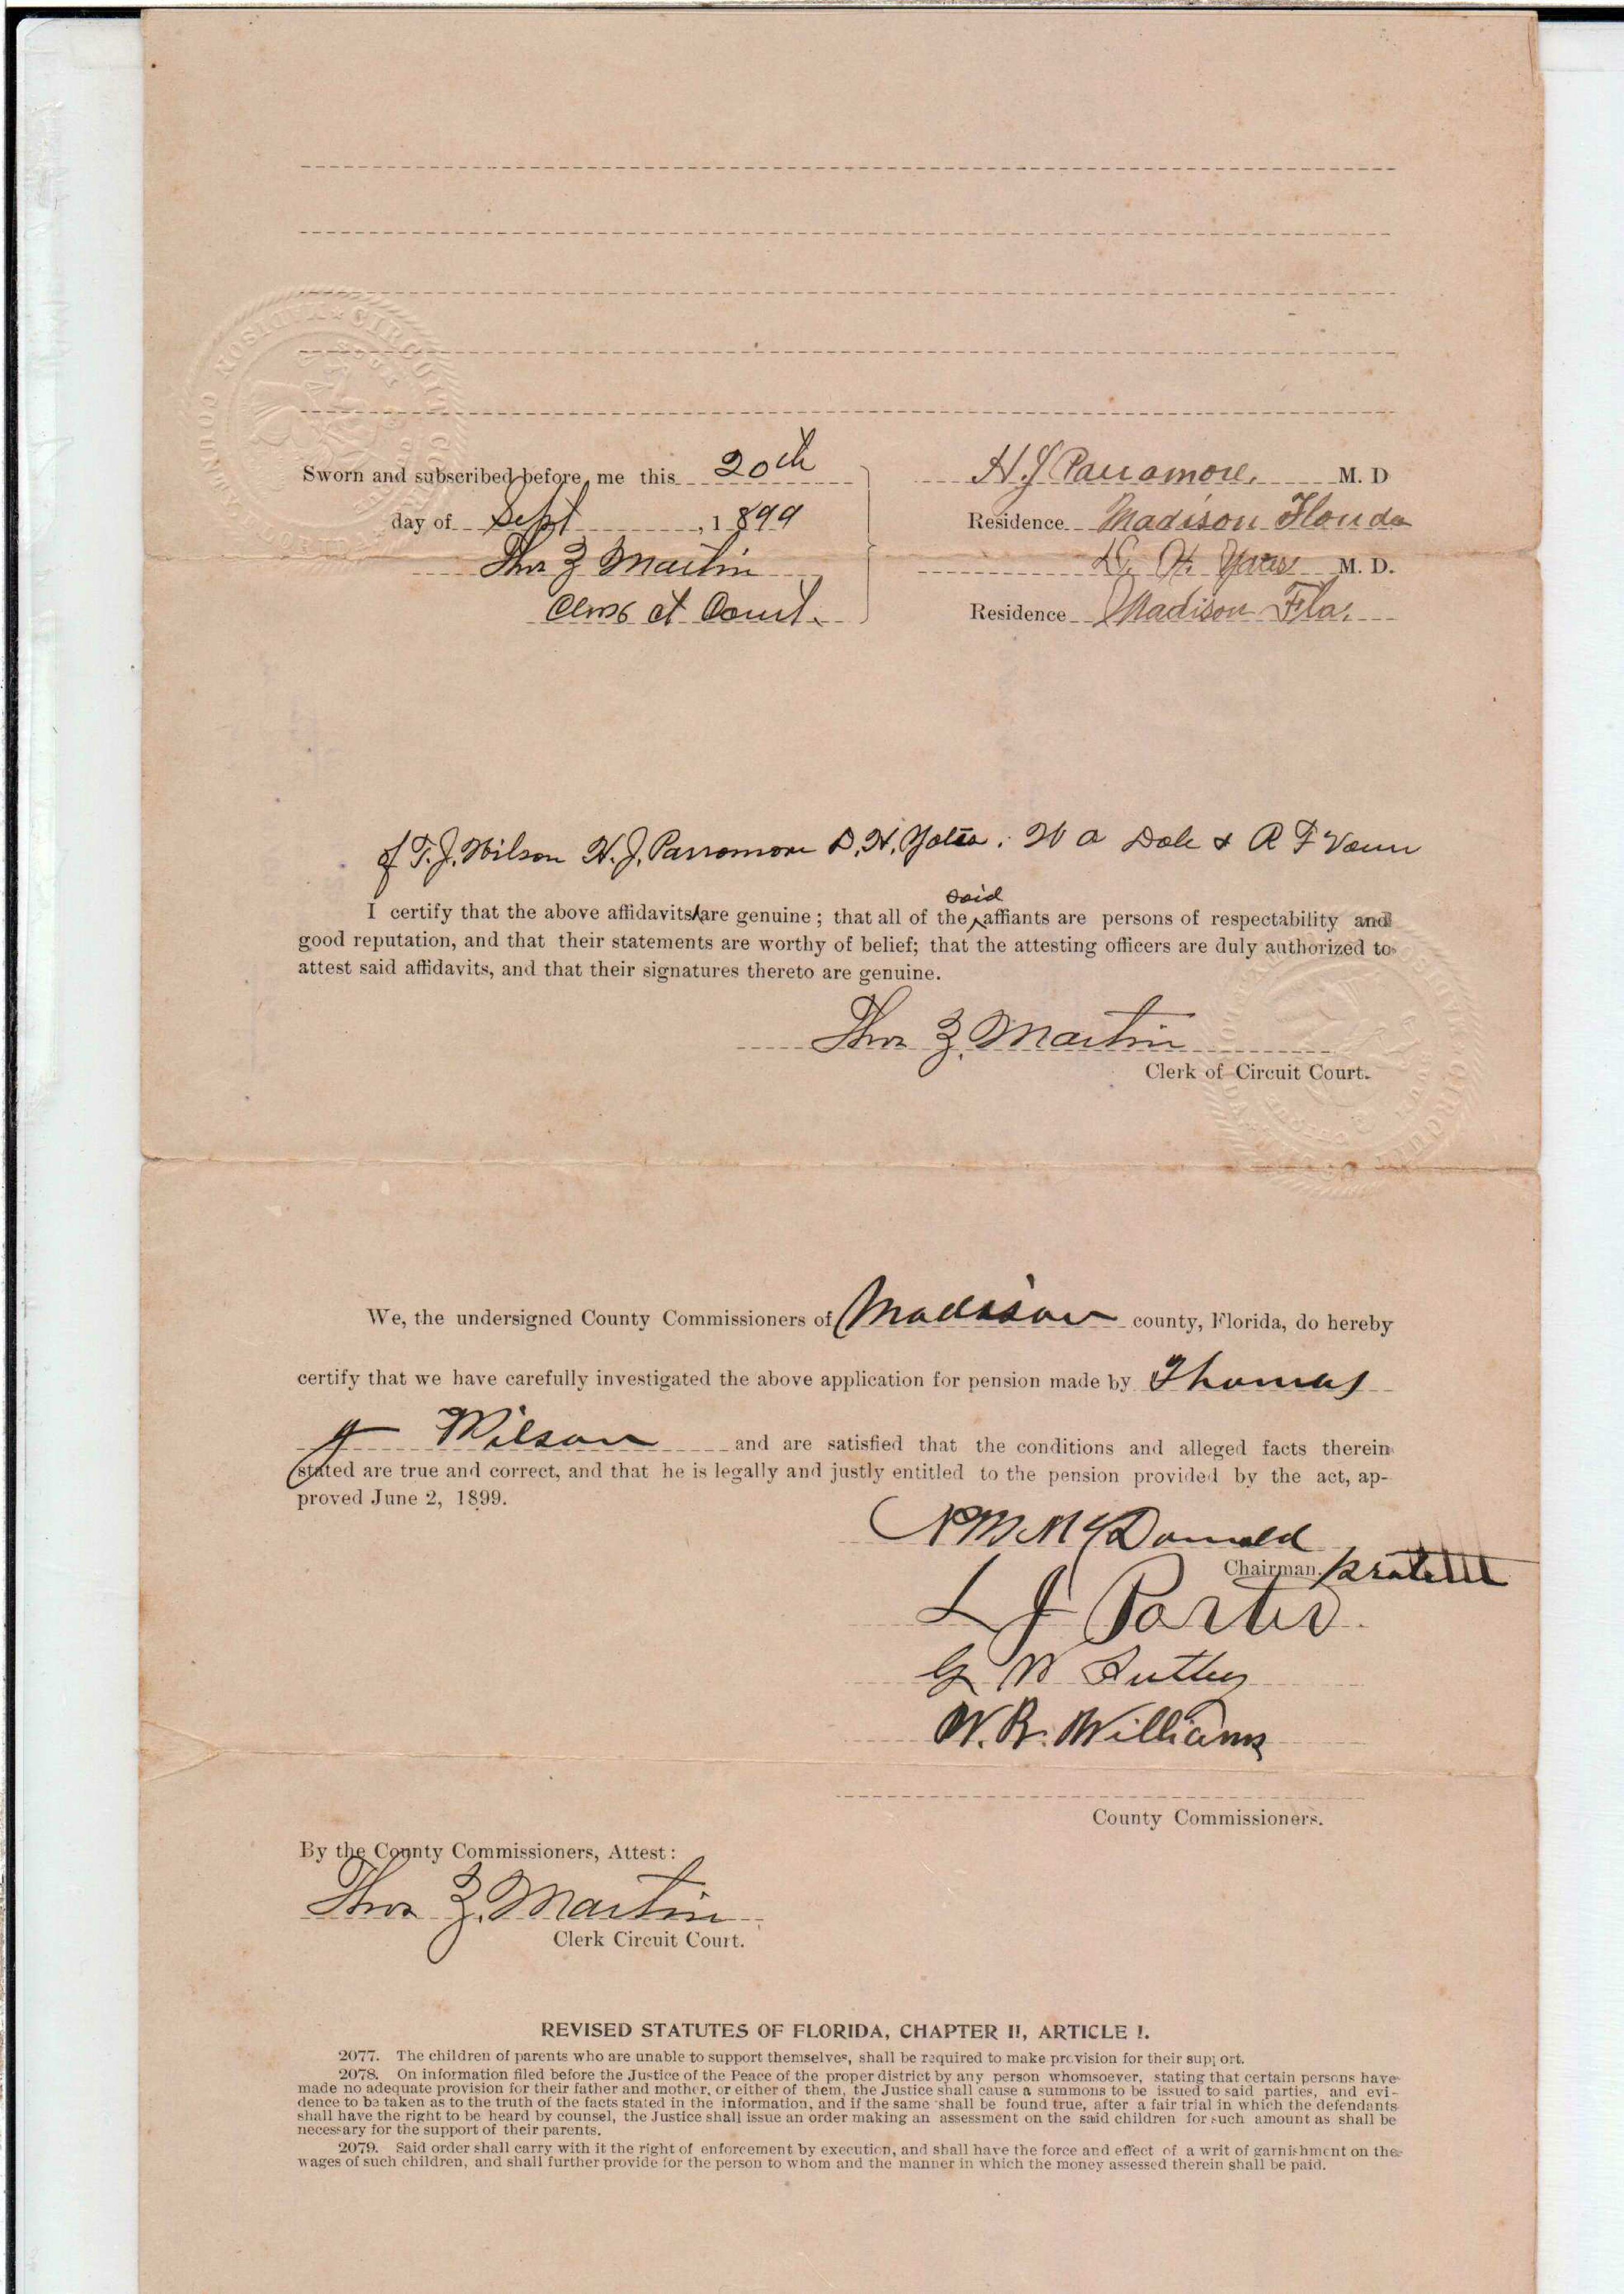 Sworn and subscribed before me this 20th
day of Sept, 1899
Thos Z Martin
Clerk ct Court.
H J Parramore, M. D
Residence Madison Florida
D. H. Yates M. D.
Residence Madison Fla.
of T. J. Wilson H. J. Parramore D. H. Yates. W A Dale & R F Vann
said
I certify that the above affidavits are genuine; that all of the affiants are persons of respectability and
good reputation, and that their statements are worthy of belief; that the attesting officers are duly authorized to
attest said affidavits, and that their signatures thereto are genuine.
Thos Z. Martin
Clerk of Circuit Court.
We, the undersigned County Commissioners of Madison county, Florida, do hereby
certify that we have carefully investigated the above application for pension made by Thomas
J Wilson and are satisfied that the conditions and alleged facts therein
stated are true and correct, and that he is legally and justly entitled to the pension provided by the act, ap-
proved June 2, 1899.
McDonald
Chairman
L J Porter
G W
W. R. Williams
County Commissioners.
By the County Commissioners, Attest:
Thos Z. Martin
Clerk Circuit Court.
REVISED STATUTES OF FLORIDA, CHAPTER II, ARTICLE I.
2077. The children of parents who are unable to support themselves, shall be required to make provision for their support.
2078. On information filed before the Justice of the Peace of the proper district by any person whomsoever, stating that certain persons have
made no adequate provision for their father and mother, or either of them, the Justice shall cause a summons to be issued to said parties, and evi-
dence to be taken as to the truth of the facts stated in the information, and if the same shall be found true, after a fair trial in which the defendants
shall have the right to be heard by counsel, the Justice shall issue an order making an assessment on the said children for such amount as shall be
necessary for the support of their parents.
2079. Said order shall carry with it the right of enforcement by execution, and shall have the force and effect of a writ of garnishment on the
wages of such children, and shall further provide for the person to whom and the manner in which the money assessed therein shall be paid.